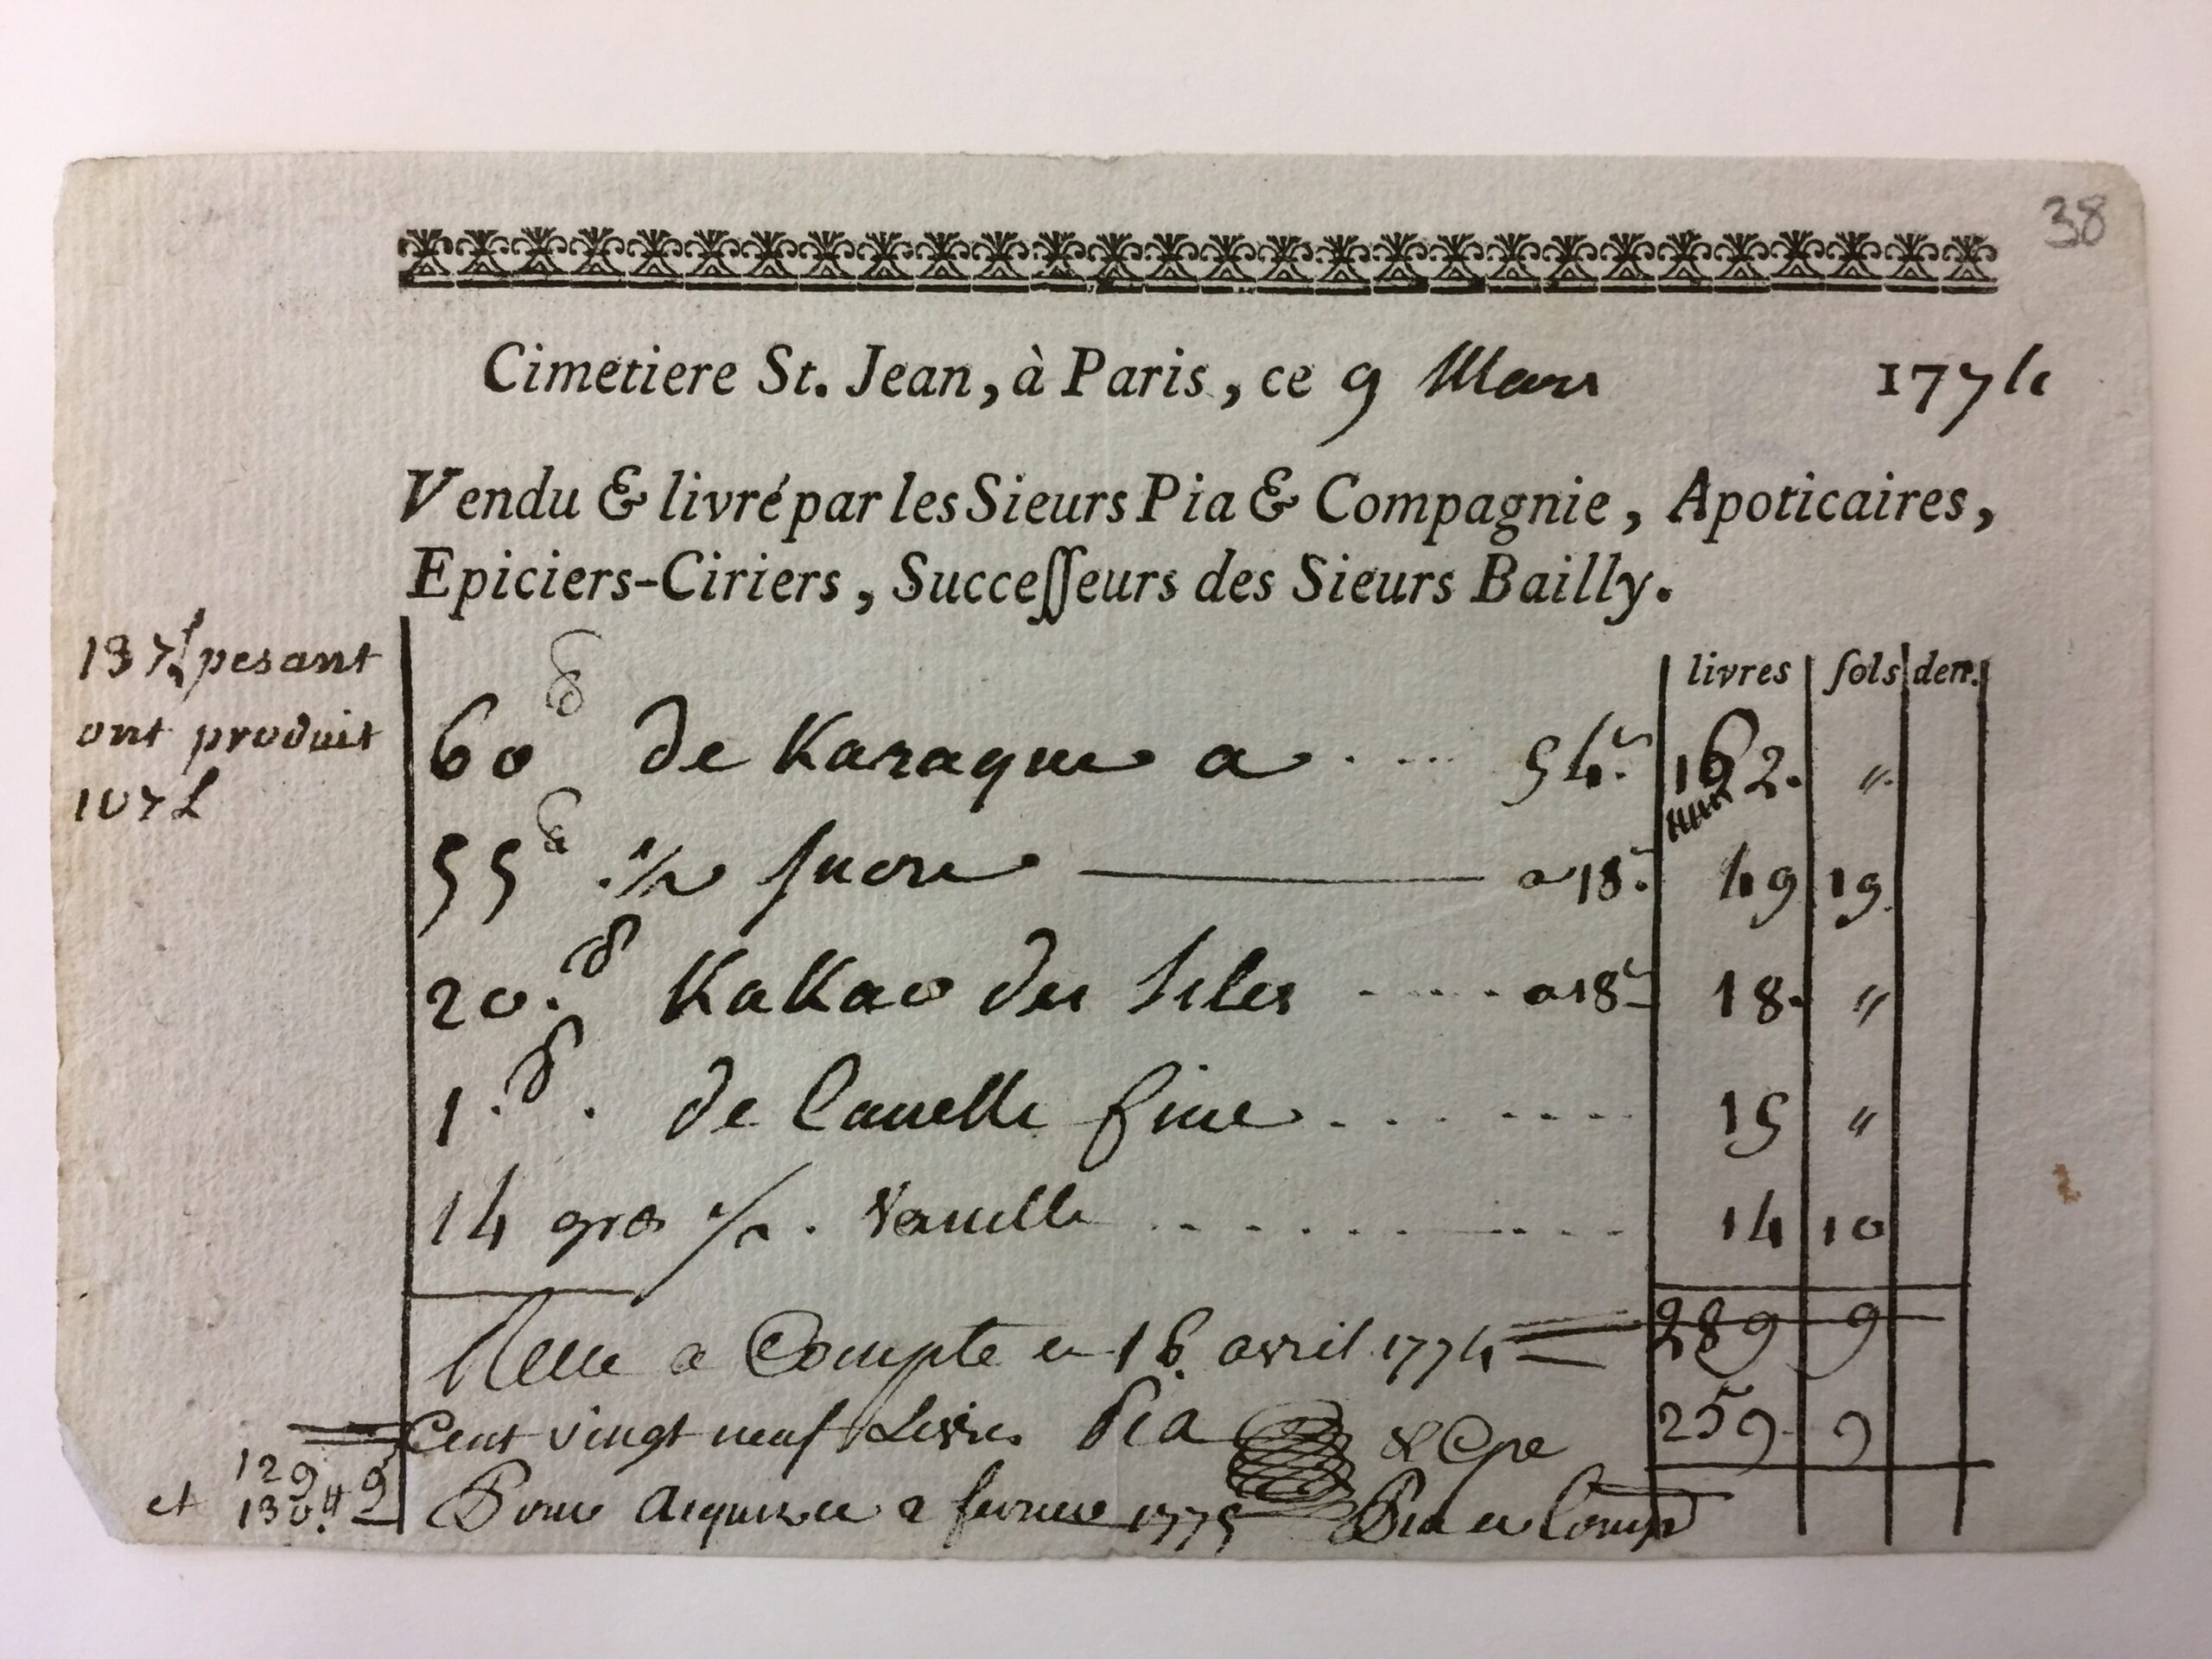 38
Cimetiere St. Jean, à Paris, ce 9 Mars 1774
Vendu & livré par les Sieurs Pia & Compagnie, Apoticaires,
Epiciers-Ciriers, Successeurs des Sieurs Bailly.
livres sols den.
137 ℔ pesant
ont produit
107 ℔
60 ℔ de Karaque a .... 54 s. 162. "
55 ℔ 1/2 sucre a 18 s. 49 19
20. ℔ KaKao des Isles .... a 18 s 18. "
1. ℔. de Canelle fine ....... 15 "
14 gros 1/2. Vanille .......... 14 10
289 9
Reçu a Compte ce 16 avril 1774
Cent vingt neuf Livres Pia & Cpe 259 9
129 9
et 130 ₶
Pour acquit ce 2 fevrier 1775 Pia et Comp